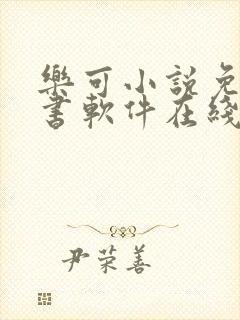 樂可小説免
書軟件在綫
尹荣善